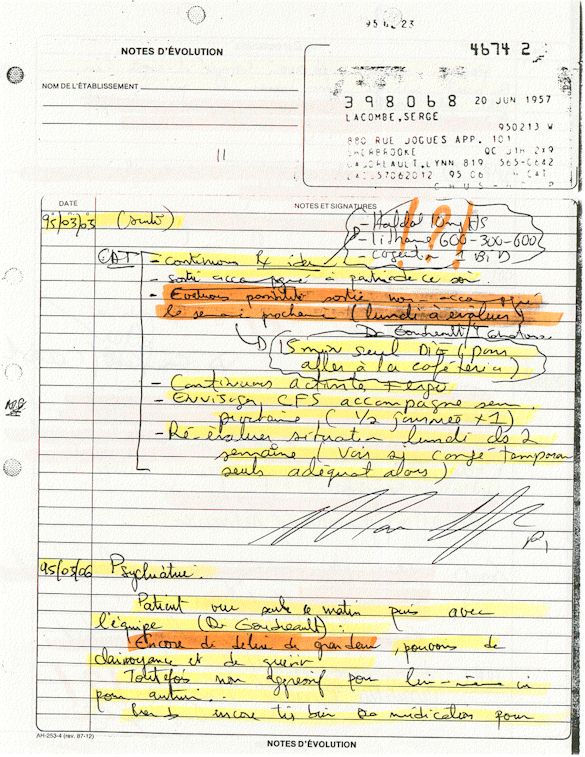 95 02 23
NOTES D'ÉVOLUTION
4674 2
NOM DE L'ÉTABLISSEMENT
398068 20 JUN 1957
LACOMBE, SERGE
950213 W
880 RUE JOGUES APP. 101
SHERBROOKE QC J1H 2X9
GAUDREAULT, LYNN 819 565-0642
LACS57062012 95 06 CAT
C H U S
11
DATE
NOTES ET SIGNATURES
!?!
95/03/03 (suite)
- Haldol 10mg HS
- Lithane 600-300-600
- Cogentin 1 BID
CAT - continuons Rx idem
- sortie accompagné à partir de ce soir.
- Évaluons possibilité sortie non accompagné
la semaine prochaine (lundi à évaluer)
Dr Goudreault
15 min seul DIE (pour
aller à la cafétéria)
- Continuons activité + ergo
- Envisager CFS accompagné sem.
prochaine (1/2 journée x 1)
- Réévaluer situation lundi ds 2
semaine (Voir si congé temporaire
seuls adéquat alors)
95/03/06 Psychiatrie.
Patient vu seule ce matin puis avec
l'équipe (Dr Goudreault):
Encore de délire de grandeur, pouvoirs de
clairvoyance et de guérir
Toutefois non aggressif pour lui-même ni
pour autrui.
encore très bien sa médication pour
AH-253-4 (rev. 87-12)
NOTES D'ÉVOLUTION